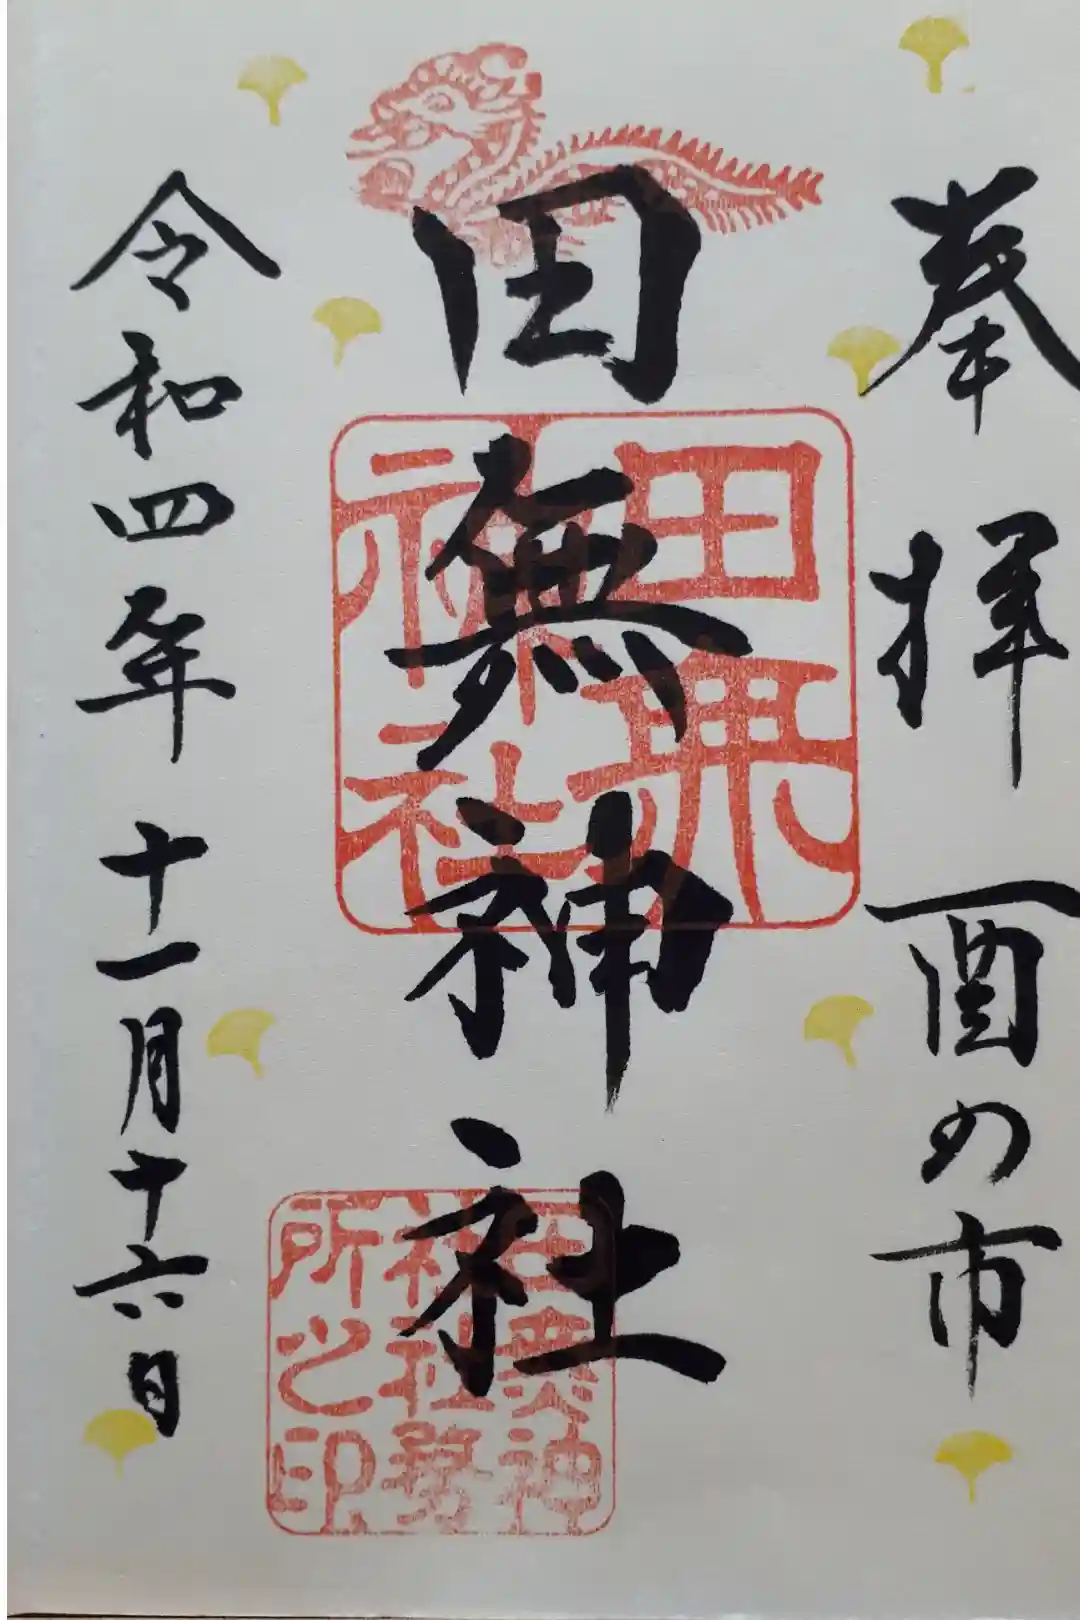 奉拝 酉の市
田無神社
令和四年 十一月十六日
田無
神社
田無神
社社務
所之印